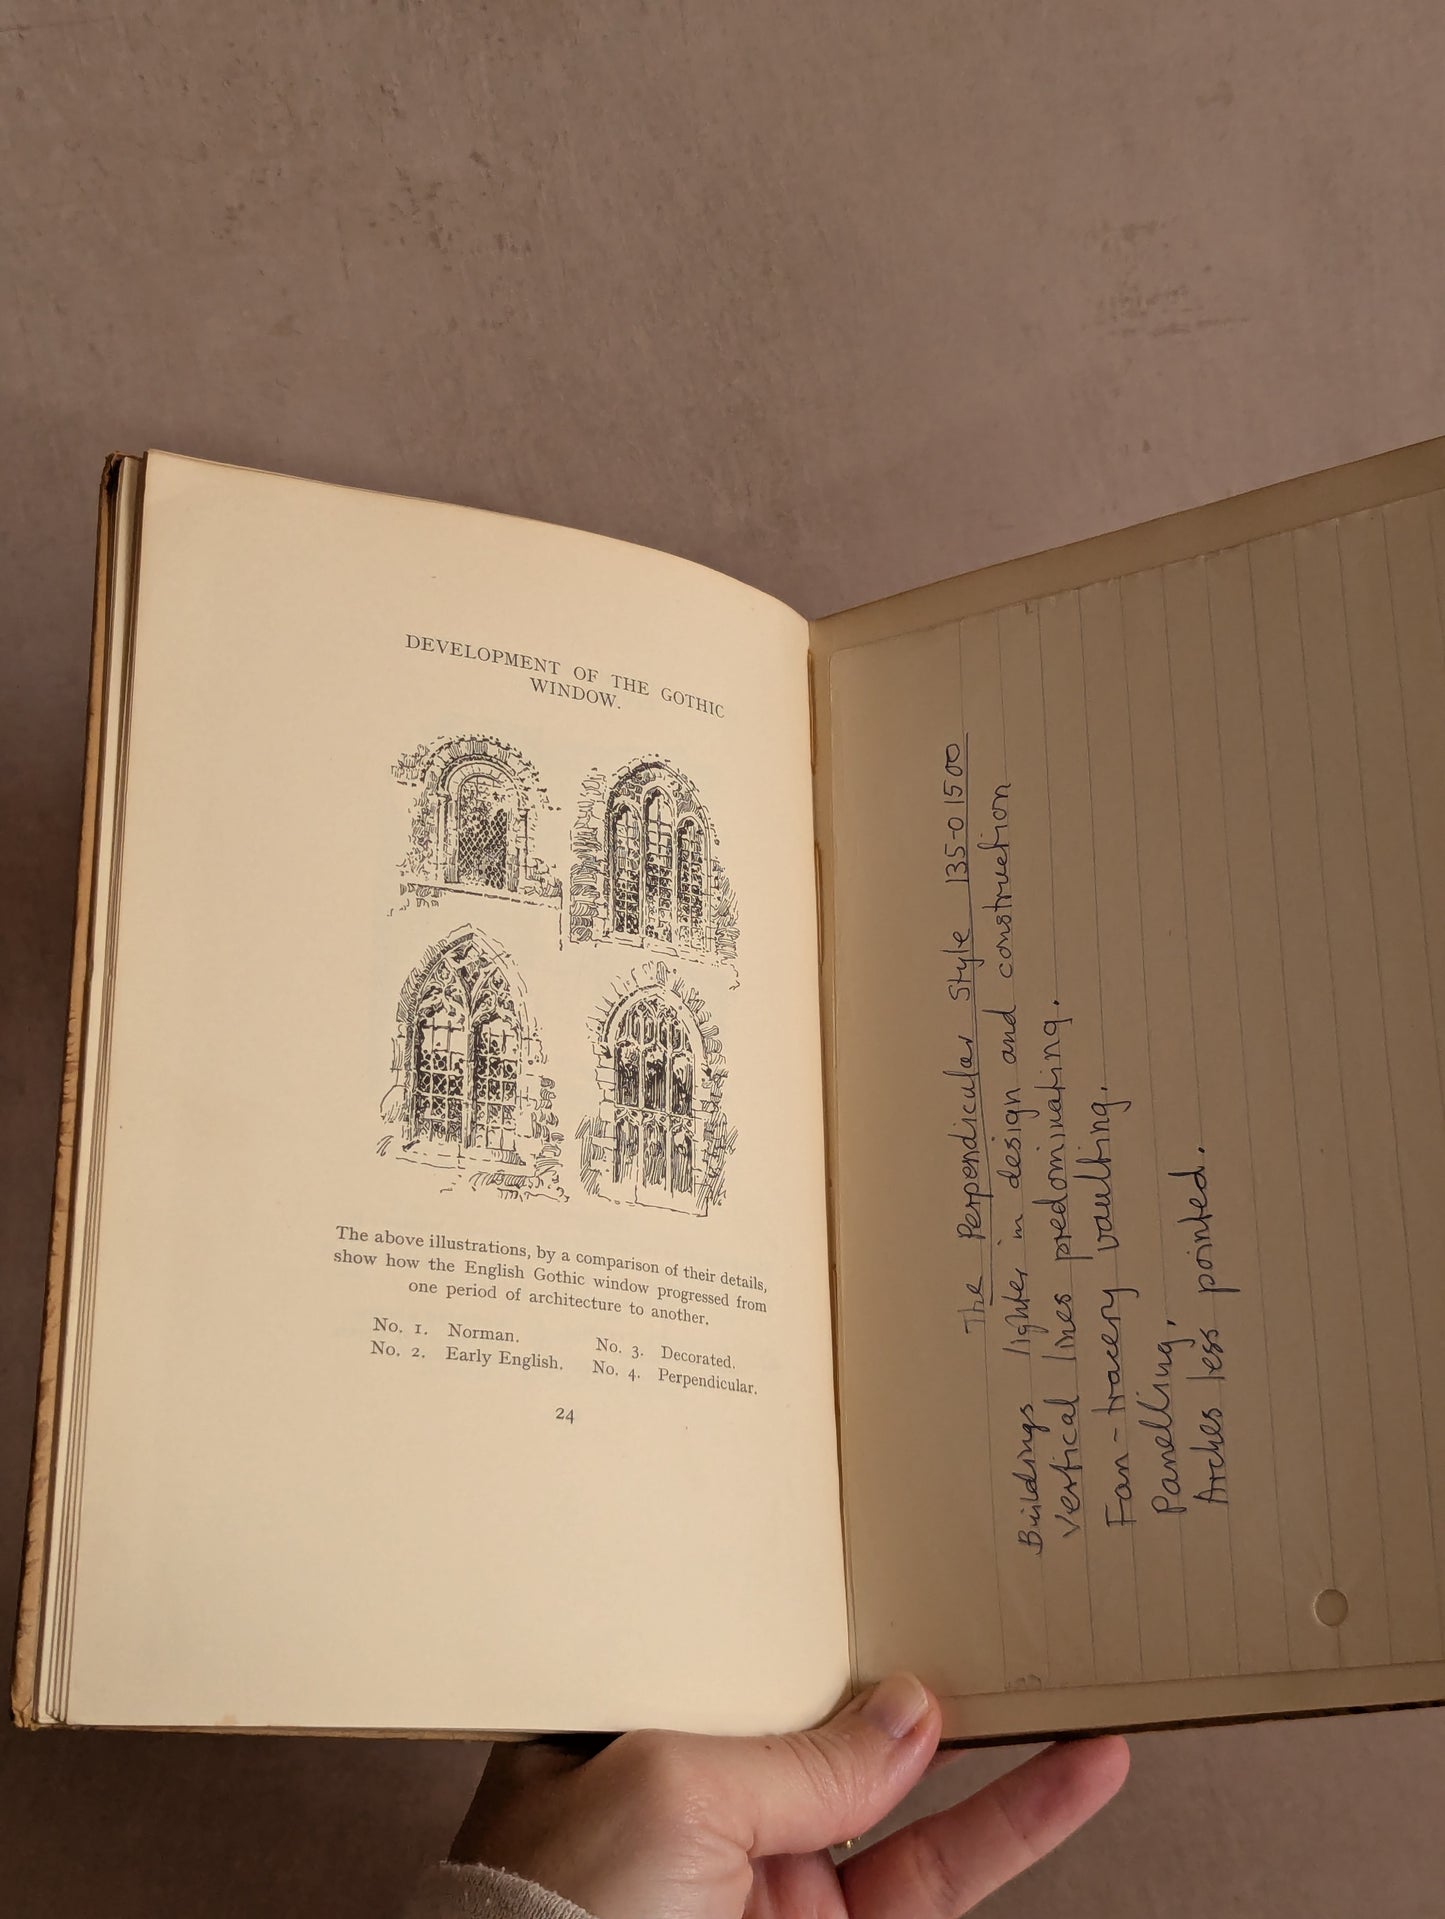 DEVELOPMENT OF THE GOTHIC
WINDOW.
The above illustrations, by a comparison of their details,
show how the English Gothic window progressed from
one period of architecture to another.
No. 1. Norman.
No. 2. Early English.
No. 3. Decorated.
No. 4. Perpendicular.
24
The Perpendicular Style 1350 1500
Buildings lighter in design and construction
Vertical lines predominating.
Fan-tracery vaulting.
Panelling.
Arches less pointed.